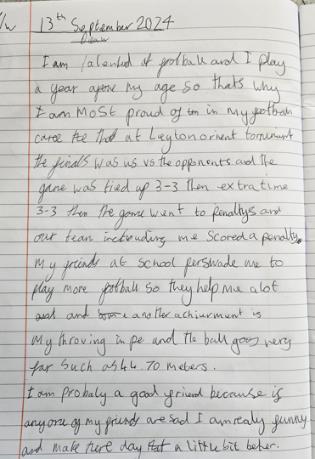 H/W 13th September 2024
Draw
I am talented at football and I play
a year above my age so thats why
I am MOST proud of in my football
at Leyton orient tornument
the finals was us vs the opponents and the
game was tied up 3-3 then extra time
3-3 then the game went to penaltys and
our team including me scored a penalty.
My friends at school perswade me to
play more football so they help me alot
and another achiurment is
My throwing in pe and the ball goes very
far such as 44.70 meters.
I am probaly a good friend because is
anyone of my friends are sad I am realy funny
and make there day a little bit better.